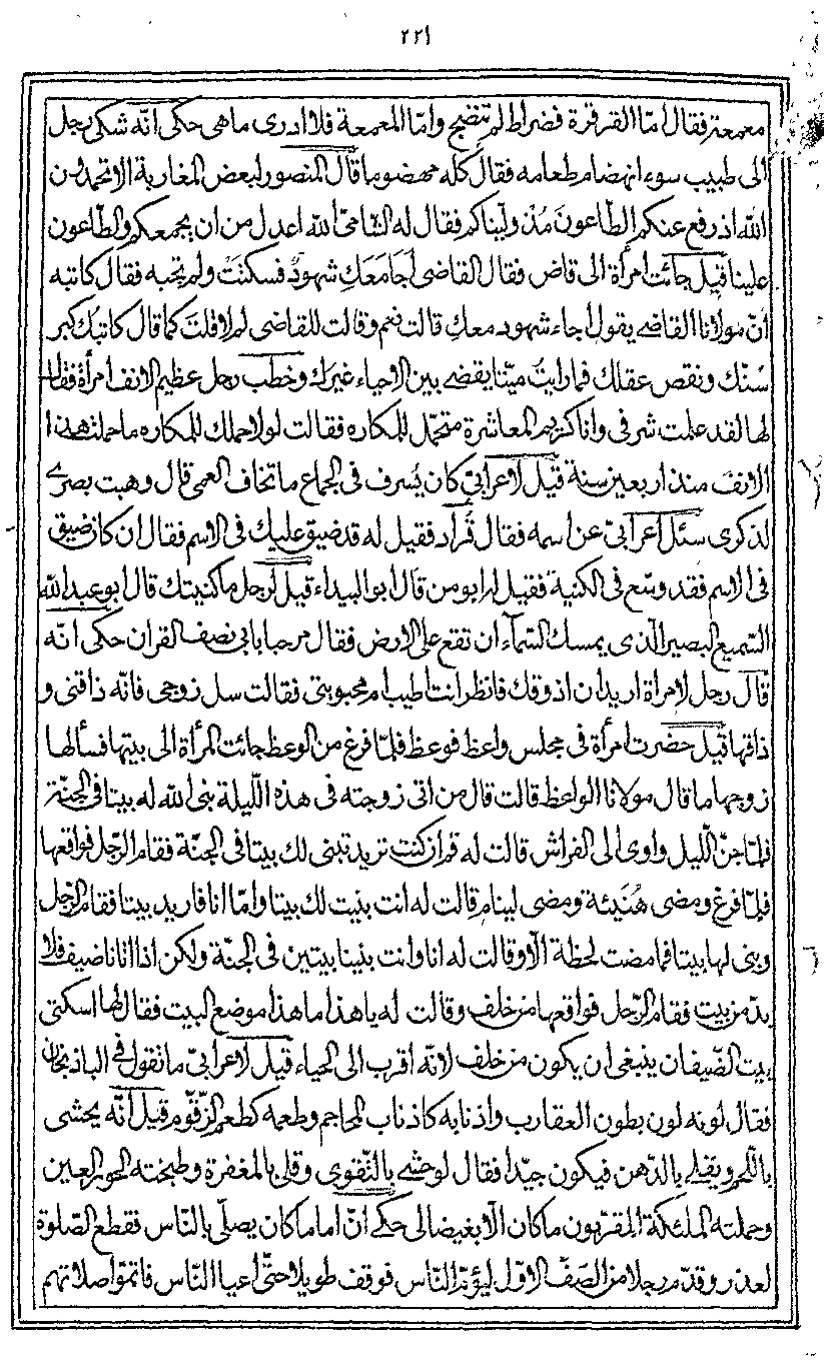 ٢٢١
معمعة فقال امّا القرقرة فضراط لم تنضج وامّا المعمعة فلا ادرى ماهى حكى انّه شكى رجل
الى طبيب سوء انهضام طعامه فقال كله مهضوما قال المنصور لبعض المغاربة الا تحمدون
الله اذ رفع عنكم الطّاعون مُذْ ولّيناكم فقال له الشّامىّ الله اعدل من ان يجمعكم والطّاعون
علينا قيل جائت امرأة الى قاض فقال القاضى اجامعكِ شهودٌ فسكتَتْ ولم تجبه فقال كاتبه
انّ مولانا القاضے يقول اجاء شهود معكِ قالت نعم وقالت للقاضى لم لا قلتَ كما قال كاتبك كبر
سُنّك ونقص عقلك فما رايتُ ميّتا يقضے بين الاحياء غيرك وخطب رجل عظيم الانف امرأة فقال
لها لقد علمت شرفى وانا كريم المعاشرة متحمّل للمكاره فقالت لولا حملك للمكاره ما حملت هذا
الانفَ منذ اربعين سنة قيل لاعرابىّ كان يُسرف فى الجماع ما تخاف العمى قال وهبت بصرے
لذكرى سئل اعرابىّ عن اسمه فقال قُراد فقيل له قد ضيّق عليك فى الاسم فقال ان كان ضيّق
فى الاسم فقد وسّع فى الكنية فقيل له ابو من قال ابو البيداء قيل لرجل ما كنيتك قال ابو عبد الله
السّميع البصير الّذى يمسك السّمآء ان تقع على الارض فقال مرحبا بابى نصف القران حكى انّه
قال رجل لامرأة اريد ان اذوقك فانظر انت اطيب ام محبوبتى فقالت سل زوجى فانّه ذاقنى و
ذاقها قيل حضرت امرأة فى مجلس واعظ فوعظ فلمّا فرغ من الوعظ جائت المرأة الى بيتها فسألها
زوجها ما قال مولانا الواعظ قالت قال من اتى زوجته فى هذه اللّيلة بنى الله له بيتا فى الجنّة
فلمّا جنّ اللّيل واوى الى الفراش قالت له قم ان كنت تريد تبنى لك بيتا فى الجنّة فقام الرّجل فواقعها
فلمّا فرغ ومضى هُنَيئة ومضى لينام قالت له انت بنيت لك بيتا وامّا انا فاريد بيتا فقام الرّجل
وبنى لها بيتا فما مضت لحظة الّا وقالت له انا وانت بنينا بيتين فى الجنّة ولكن اذا اتانا ضيف فلا
بدّ من بيت فقام الرّجل فواقعها من خلف وقالت له يا هذا ما هذا موضع البيت فقال لها اسكتى
بيت الضّيفان ينبغى ان يكون من خلف لانّه اقرب الى الحياء قيل لاعرابىّ ما تقول فے الباذنجان
فقال لونه لون بطون العقارب واذنابه كاذناب المحاجم وطعمه كطعم الزّقّوم قيل انّه يحشى
باللّحم ويقلے بالدّهن فيكون جيّدا فقال لو حشے بالتّقوى وقلى بالمغفرة وطبخته الحور العين
وحملته الملئكة المقرّبون ما كان الّا بغيضا لى حكے انّ اماما كان يصلّى بالنّاس فقطع الصّلوة
لعذر وقدّم رجلا من الصّفّ الاوّل ليؤمّ النّاس فوقف طويلا حتّى اعيا النّاس فاتمّوا صلاتهم